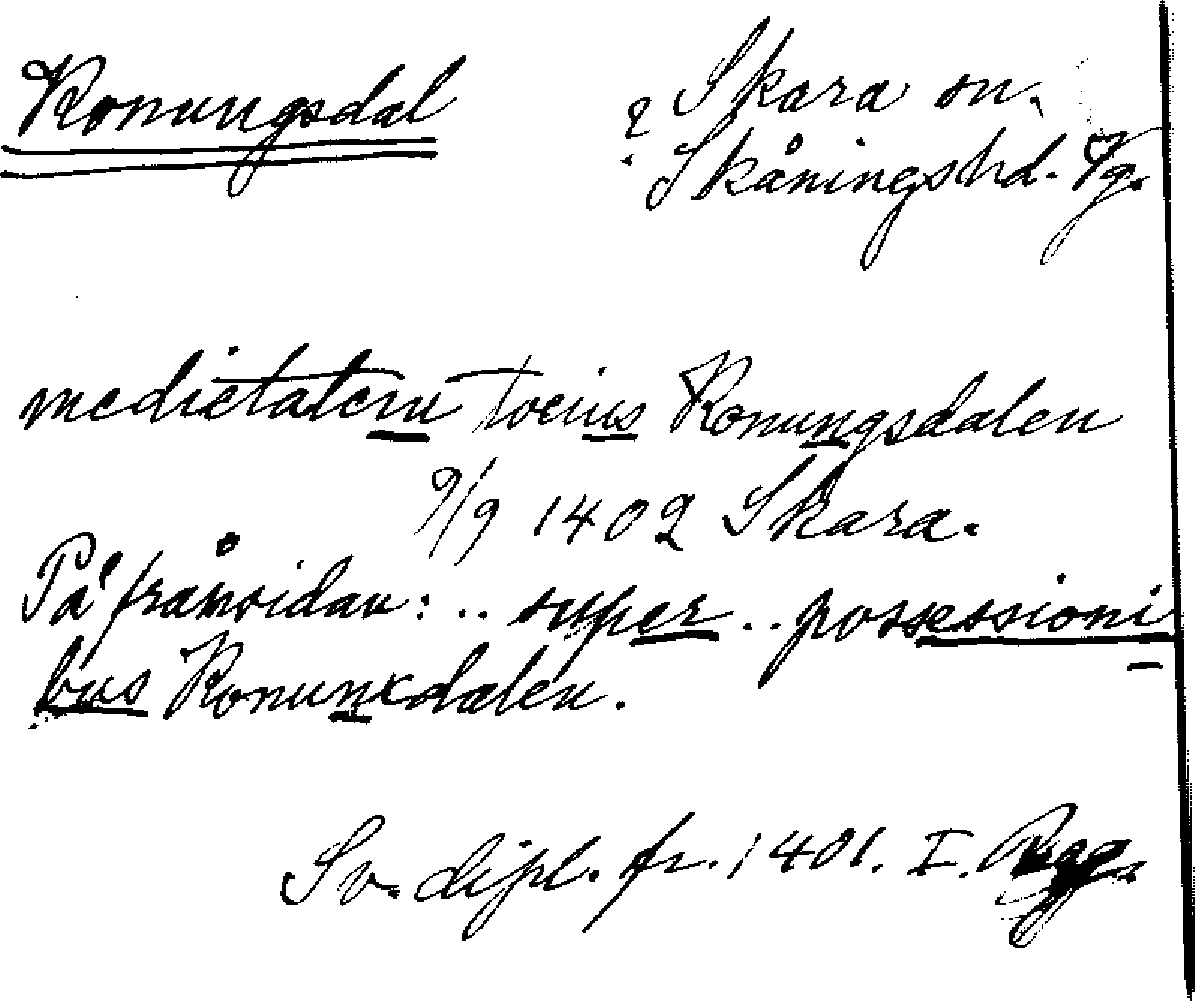 Konungsdal
? Skara sn.
Skånings hd. Vg.
medietatem tocius Konungsdalen
9/9 1402 Skara.
På frånsidan: .. super .. possessioni
bus Konunxdalen.
Sv. dipl. fr. 1401. I.